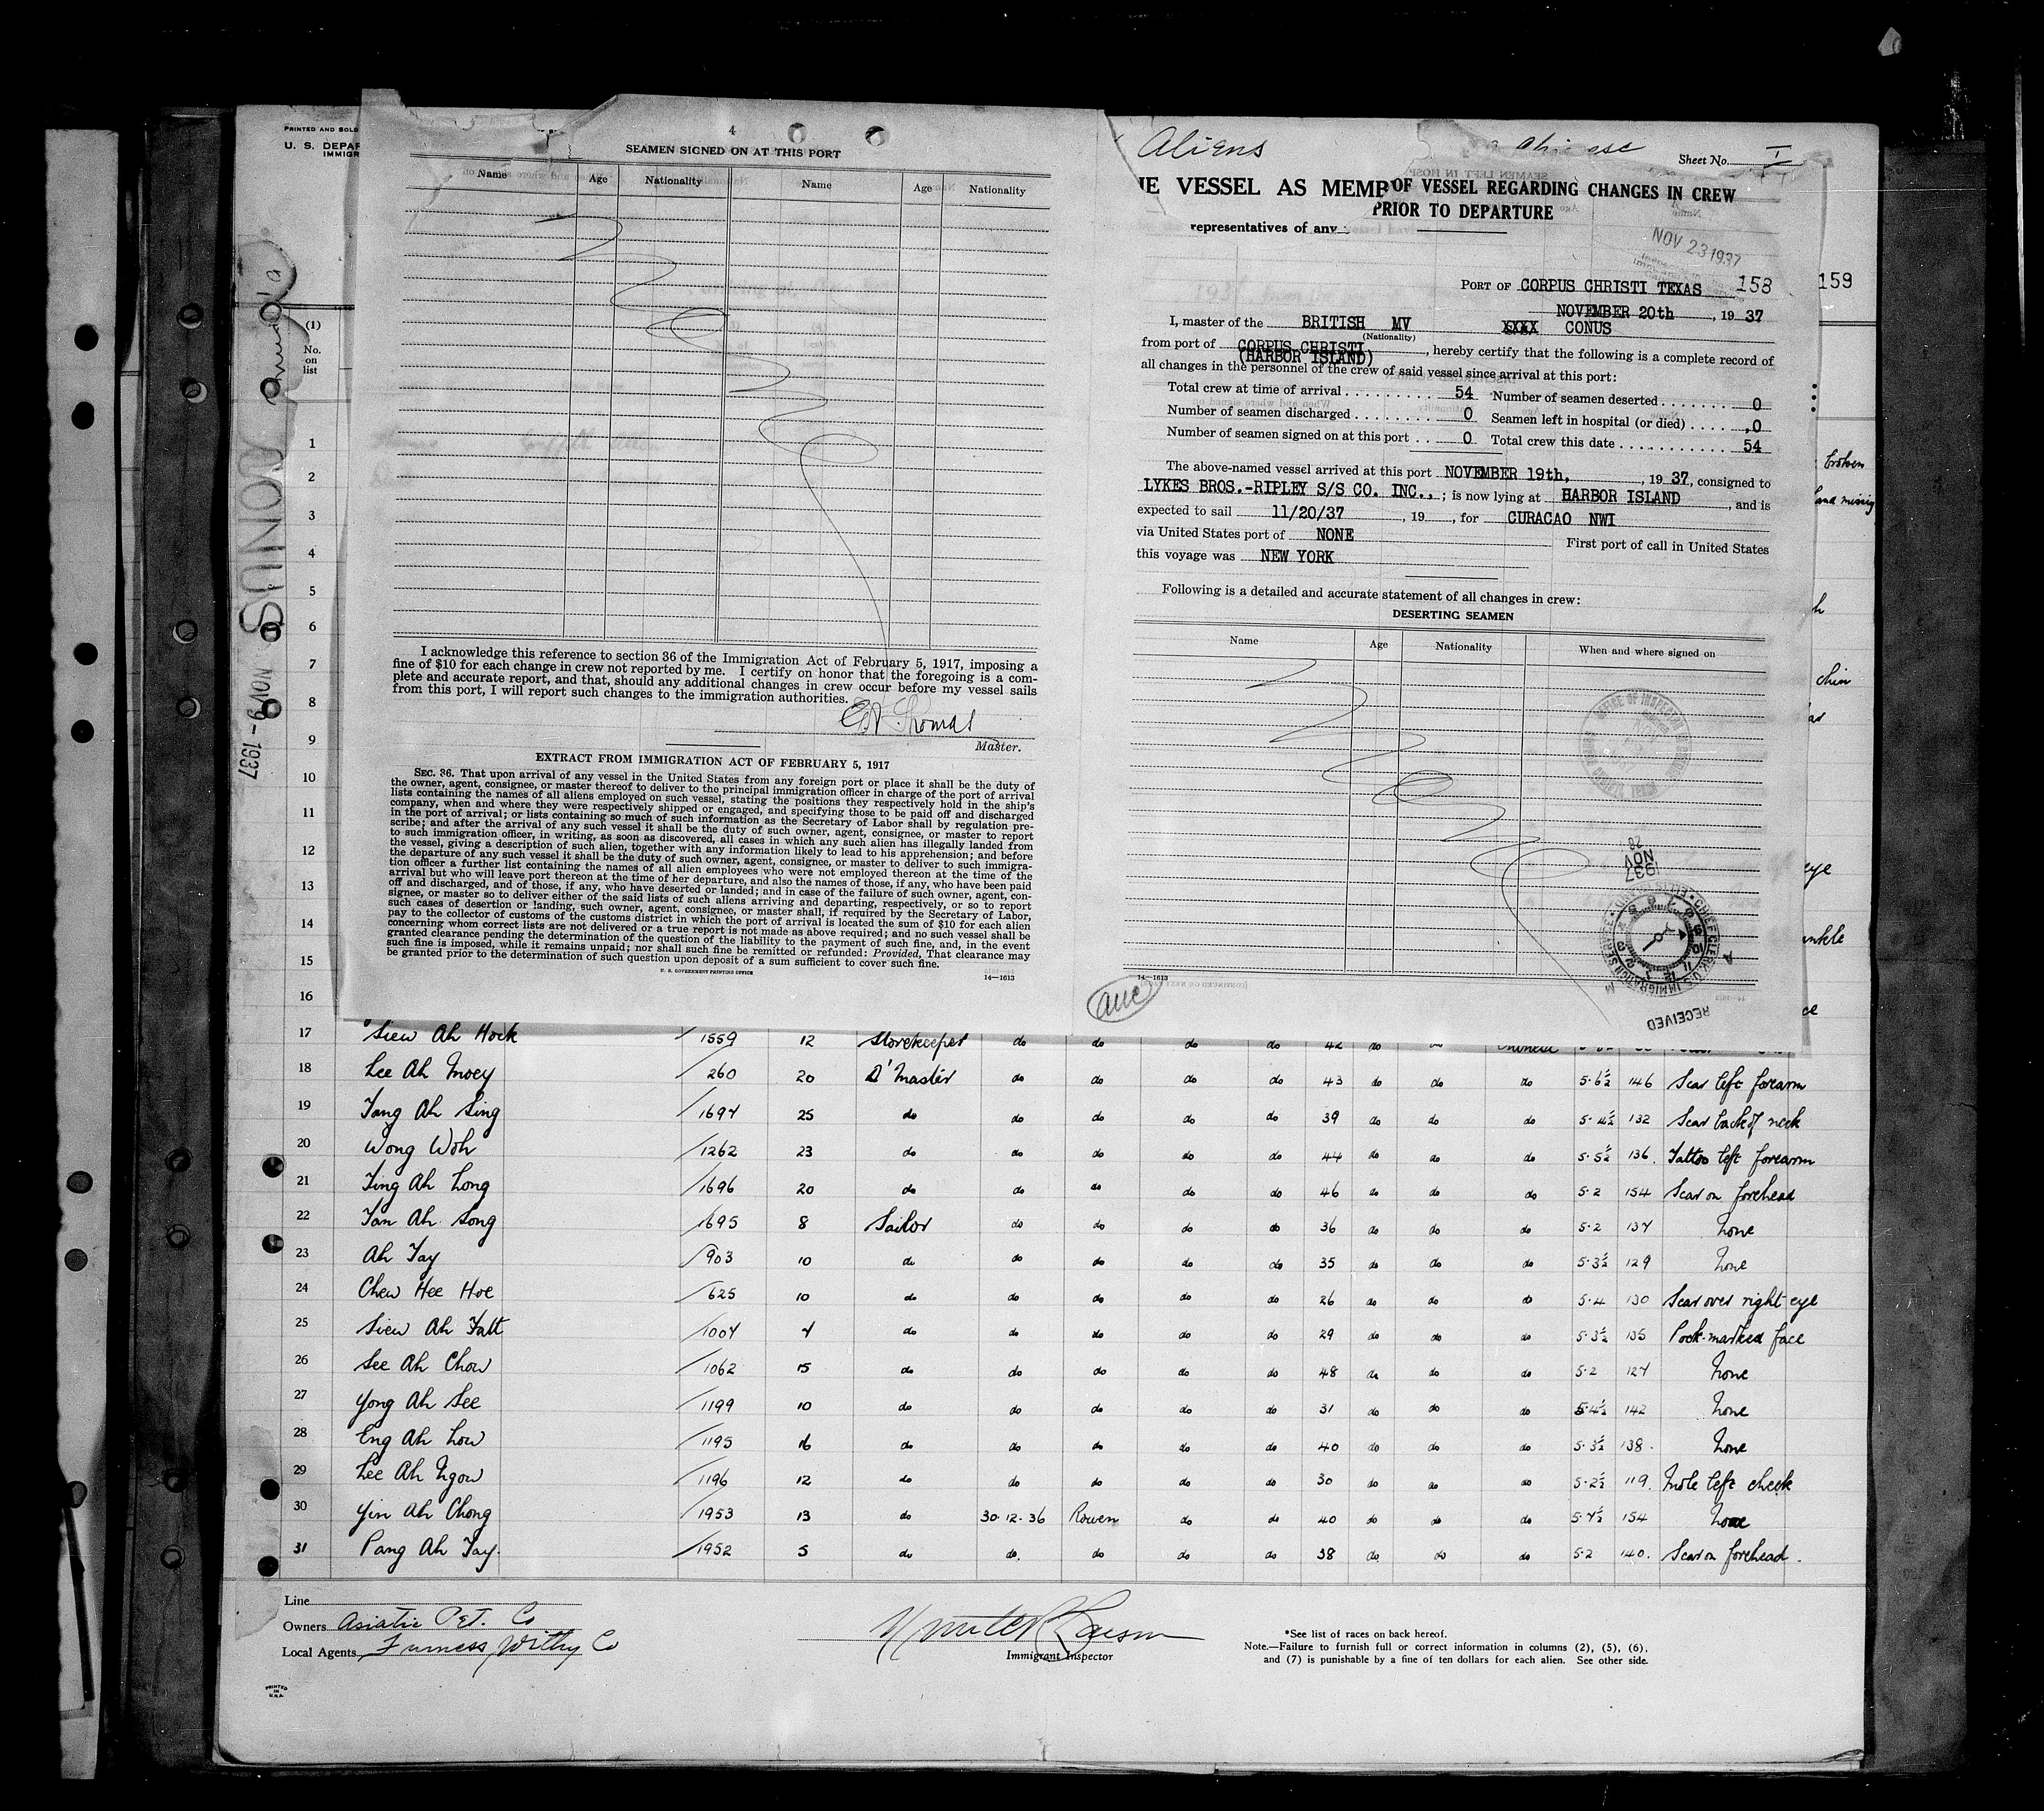 PRINTED AND SOLD
U. S. DEPAR
IMMIGR
4
SEAMEN SIGNED ON AT THIS PORT
Name Age Nationality Name Age Nationality
I acknowledge this reference to section 36 of the Immigration Act of February 5, 1917, imposing a
fine of $10 for each change in crew not reported by me. I certify on honor that the foregoing is a com-
plete and accurate report, and that, should any additional changes in crew occur before my vessel sails
from this port, I will report such changes to the immigration authorities.
Thomas
Master.
EXTRACT FROM IMMIGRATION ACT OF FEBRUARY 5, 1917
SEC. 36. That upon arrival of any vessel in the United States from any foreign port or place it shall be the duty of
the owner, agent, consignee, or master thereof to deliver to the principal immigration officer in charge of the port of arrival
lists containing the names of all aliens employed on such vessel, stating the positions they respectively hold in the ship's
company, when and where they were respectively shipped or engaged, and specifying those to be paid off and discharged
in the port of arrival; or lists containing so much of such information as the Secretary of Labor shall by regulation pre-
scribe; and after the arrival of any such vessel it shall be the duty of such owner, agent, consignee, or master to report
to such immigration officer, in writing, as soon as discovered, all cases in which any such alien has illegally landed from
the vessel, giving a description of such alien, together with any information likely to lead to his apprehension; and before
the departure of any such vessel it shall be the duty of such owner, agent, consignee, or master to deliver to such immigra-
tion officer a further list containing the names of all alien employees who were not employed thereon at the time of the
arrival but who will leave port thereon at the time of her departure, and also the names of those, if any, who have been paid
off and discharged, and of those, if any, who have deserted or landed; and in case of the failure of such owner, agent, con-
signee, or master so to deliver either of the said lists of such aliens arriving and departing, respectively, or so to report
such cases of desertion or landing, such owner, agent, consignee, or master shall, if required by the Secretary of Labor,
pay to the collector of customs of the customs district in which the port of arrival is located the sum of $10 for each alien
concerning whom correct lists are not delivered or a true report is not made as above required; and no such vessel shall be
granted clearance pending the determination of the question of the liability to the payment of such fine, and, in the event
such fine is imposed, while it remains unpaid; nor shall such fine be remitted or refunded: Provided, That clearance may
be granted prior to the determination of such question upon deposit of a sum sufficient to cover such fine.
U. S. GOVERNMENT PRINTING OFFICE 14—1613
Aliens
Sheet No. I
IE VESSEL AS MEMB OF VESSEL REGARDING CHANGES IN CREW
PRIOR TO DEPARTURE
representatives of any
NOV 23 1937
PORT OF CORPUS CHRISTI TEXAS 158 159
NOVEMBER 20th, 1937
I, master of the BRITISH MV XXXX CONUS
(Nationality)
from port of CORPUS CHRISTI (HARBOR ISLAND), hereby certify that the following is a complete record of
all changes in the personnel of the crew of said vessel since arrival at this port:
Total crew at time of arrival 54 Number of seamen deserted 0
Number of seamen discharged 0 Seamen left in hospital (or died) 0
Number of seamen signed on at this port 0 Total crew this date 54
The above-named vessel arrived at this port NOVEMBER 19th, 1937, consigned to
LYKES BROS.-RIPLEY S/S CO. INC.,; is now lying at HARBOR ISLAND, and is
expected to sail 11/20/37, 19 , for CURACAO NWI
via United States port of NONE First port of call in United States
this voyage was NEW YORK
Following is a detailed and accurate statement of all changes in crew:
DESERTING SEAMEN
Name Age Nationality When and where signed on
1937
NOV
RECEIVED
14—1613
CONUS NOV 9- 1937
(1)
No.
on
list
1
2
3
4
5
6
7
8
9
10
11
12
13
14
15
16
broken
hand missing
chin
eye
ankle
17 Siew Ah Hock 1559 12 Storekeeper do do do do 42 do do Chinese
18 Lee Ah Moey 260 20 Q'Master do do do do 43 do do do 5·6½ 146 Scar left forearm
19 Tang Ah Sing 1694 25 do do do do do 39 do do do 5·4½ 132 Scar back of neck
20 Wong Woh 1262 23 do do do do do 44 do do do 5·5½ 136 Tattoo left forearm
21 Ting Ah Long 1696 20 do do do do do 46 do do do 5·2 154 Scar on forehead
22 Tan Ah Song 1695 8 Sailor do do do do 36 do do do 5·2 134 None
23 Ah Tay 903 10 do do do do do 35 do do do 5·3½ 129 None
24 Chew Hee Hoe 625 10 do do do do do 26 do do do 5·4 130 Scar over right eye
25 Siew Ah Fatt 1004 4 do do do do do 29 do do do 5·3½ 135 Pock-marked face
26 See Ah Chow 1062 15 do do do do do 48 do do do 5·2 124 None
27 Yong Ah See 1199 10 do do do do do 31 do do do 5·4½ 142 None
28 Eng Ah Low 1195 16 do do do do do 40 do do do 5·3½ 138 None
29 Lee Ah Ngow 1196 12 do do do do do 30 do do do 5·2½ 119 Mole left cheek
30 Yin Ah Chong 1953 13 do 30·12·36 Rouen do do 40 do do do 5·4½ 154 None
31 Pang Ah Tay 1952 5 do do do do do 38 do do do 5·2 140 Scar on forehead
Line
Owners Asiatic Pet. Co
Local Agents Furness, Withy Co
Immigrant Inspector
*See list of races on back hereof.
Note.—Failure to furnish full or correct information in columns (2), (5), (6),
and (7) is punishable by a fine of ten dollars for each alien. See other side.
PRINTED
IN
U.S.A.